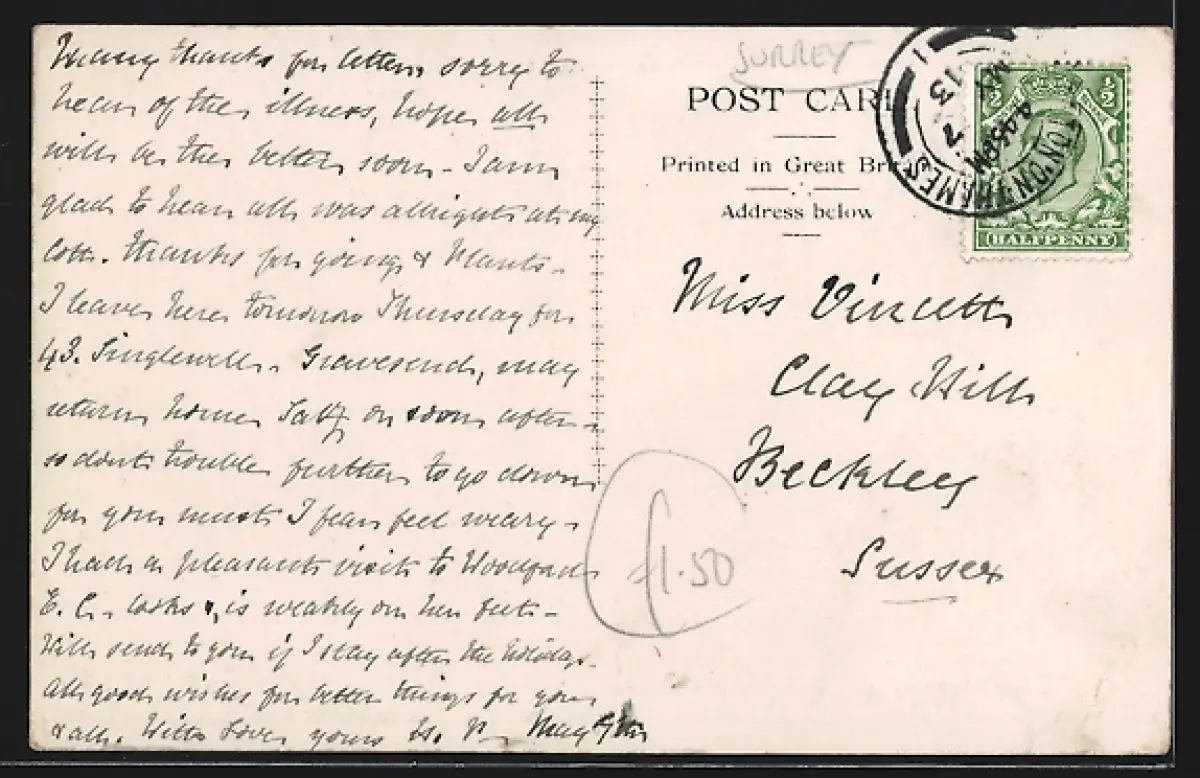 Many thanks for letter, sorry to
hear of the illness, hope all
will be the better soon - I am
glad to hear all was allright at my
Cott. thanks for going & Plants -
I leave here tomorrow Thursday for
43. Singlewell. Gravesend, may
return home Saty or soon after -
so dont trouble further to go down
for you must I fear feel weary -
I had a pleasant visit to Woodford
E. C. looks & is weakly on her feet -
Will send to you if I stay after the holidays.
All good wishes for better things for you
& all. With Love yours May 7th
SURREY
POST CARD
Printed in Great Britain
Address below
Miss Vincett
Clay Hill
Beckley
Sussex
£1.50
TON ON THAMES
4.45PM
MY 7
13
1
½ ½
HALFPENNY